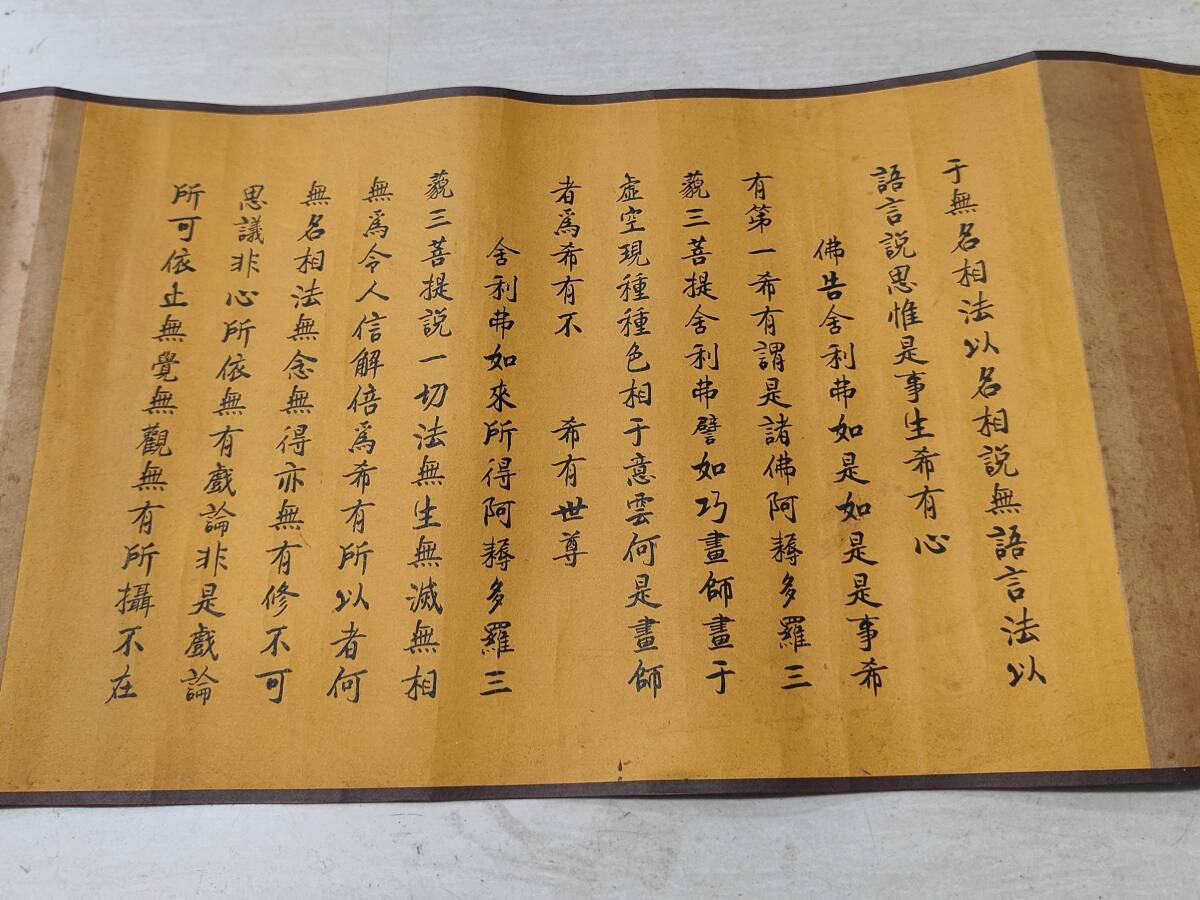 于無名相法以名相說無語言法以
語言說思惟是事生希有心
佛告舍利弗如是如是是事希
有第一希有謂是諸佛阿耨多羅三
藐三菩提舍利弗譬如巧畫師畫于
虛空現種種色相于意雲何是畫師
者爲希有不 希有世尊
舍利弗如來所得阿耨多羅三
藐三菩提說一切法無生無滅無相
無爲令人信解倍爲希有所以者何
無名相法無念無得亦無有修不可
思議非心所依無有戲論非是戲論
所可依止無覺無觀無有所攝不在